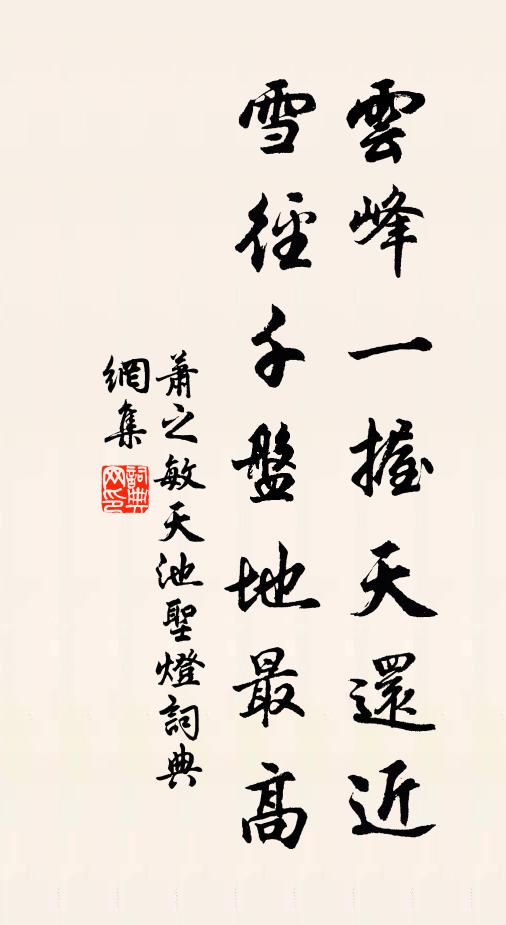 雲峰一握天還近
雪徑千盤地最高
蕭之敏天池聖燈詞典
網集
詞典網印